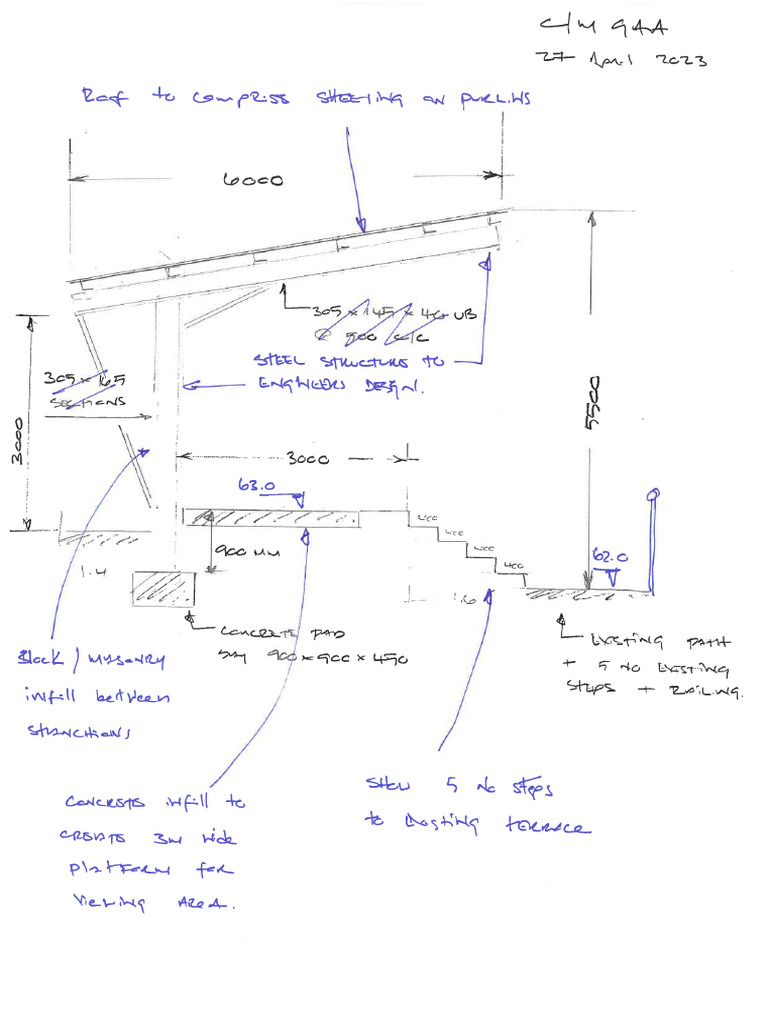 C/M GAA
27 April 2023
Roof to comprise sheeting on purlins
6000
305 x 145 x 40 UB
@ 900 c/c
STEEL STRUCTURE TO
ENGINEERS DESIGN.
305 x 165
SECTIONS
3000
5500
3000
63.0
400
400
400
400
900 MM
62.0
1.4
1.6
CONCRETE PAD
900 x 900 x 450
EXISTING PATH
+ 5 NO EXISTING
STEPS + RAILING.
Block / MASONRY
infill between
STANCHIONS
CONCRETE infill to
CREATE 3m wide
PLATFORM for
VIEWING AREA.
Show 5 No Steps
to EXISTING TERRACE